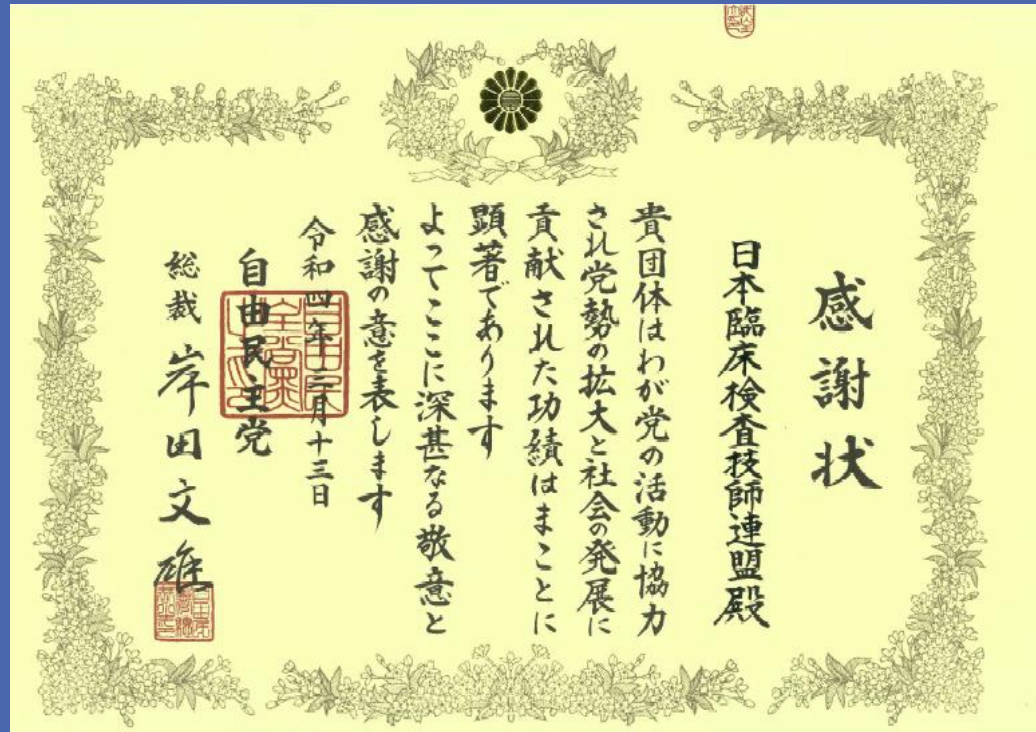 感謝状
日本臨床検査技師連盟殿
貴団体はわが党の活動に協力
され党勢の拡大と社会の発展に
貢献された功績はまことに
顕著であります
よってここに深甚なる敬意と
感謝の意を表します
令和四年三月十三日
自由民主党
総裁 岸田文雄